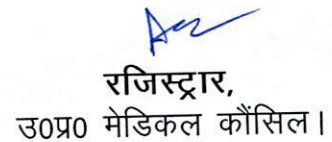 रजिस्ट्रार,
उ0प्र0 मेडिकल कौंसिल।